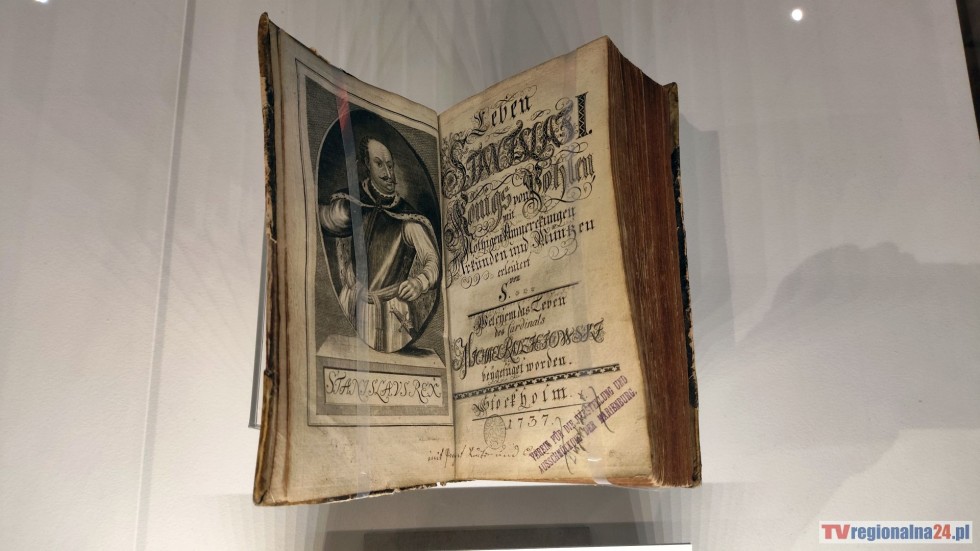 STANISLAUS REX
Leben
STANISLAI I.
Königs von Pohlen
mit
Nöthigen Anmerckungen
Urkunden und Müntzen
erleutert
von
S. ***
Welchem das Leben
des Cardinals
beygefüget worden.
Stockholm.
1737.
VEREIN FÜR DIE HERSTELLUNG UND
AUSSCHMÜCKUNG DER MARIENBURG.
TVregionalna24.pl